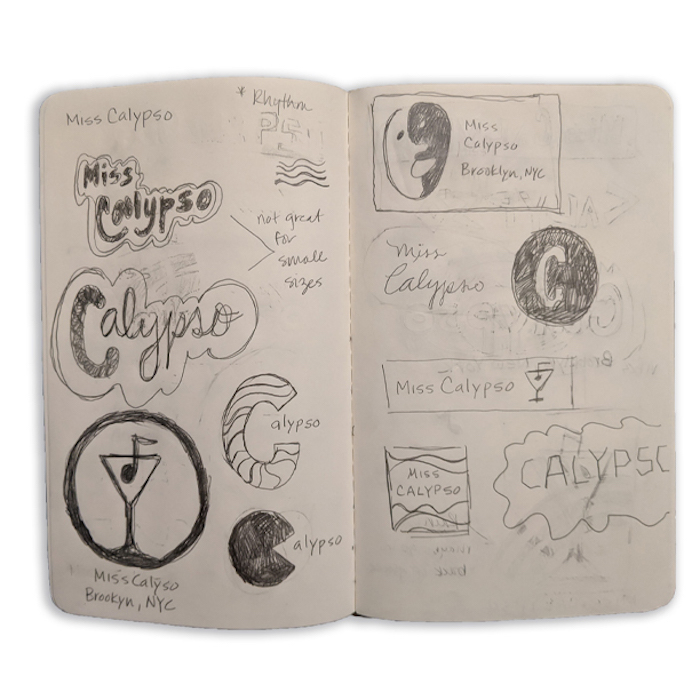 Miss Calypso
* Rhythm
Miss
Calypso
not great
for
small
sizes
Calypso
Calypso
Miss Calyso
Brookyn, NYC
Calypso
Miss
Calypso
Brooklyn, NYC
Miss
Calypso
C
Miss Calypso
MISS
CALYPSO
CALYPSO